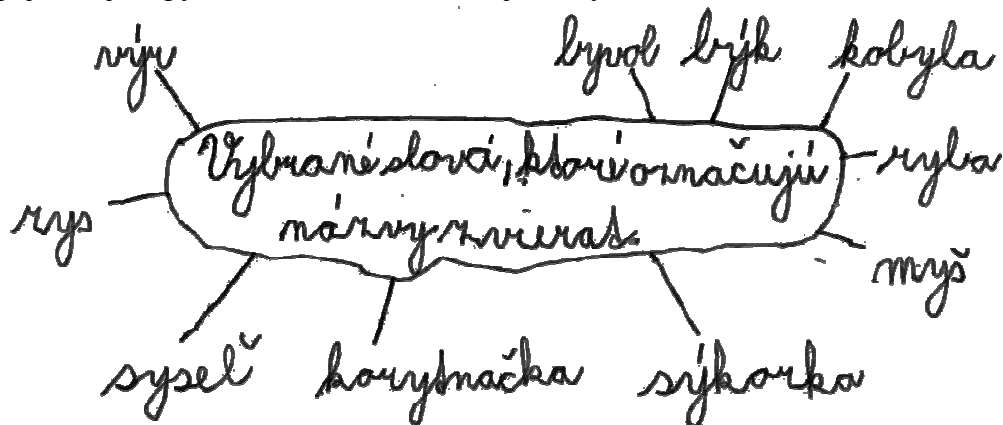 výr byvol býk kobyla
Vybrané slová, ktoré označujú ryba
názvy zvierat.
rys
myš
syseľ korytnačka sýkorka